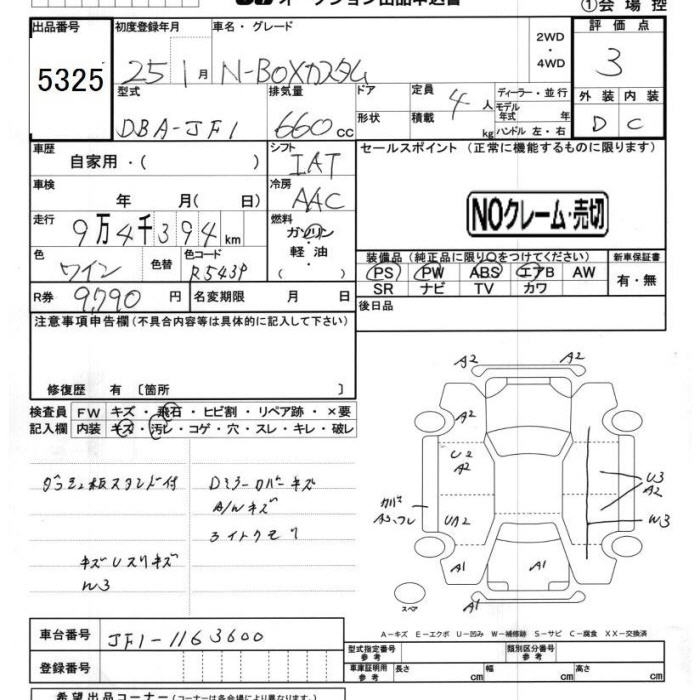 オークション出品申込書
①会場控
出品番号
5325
初度登録年月
25 1月
車名・グレード
N-BOXカスタム
2WD
・
4WD
評価点
3
型式
DBA-JF1
排気量
660cc
ドア
形状
定員
4人
積載
kg
ディーラー・並行
モデル
年式 年
ハンドル 左・右
外装 内装
D C
車歴
自家用・( )
シフト
IAT
セールスポイント (正常に機能するものに限ります)
車検
年 月( 日)
冷房
AAC
NOクレーム・売切
走行
9万4千394km
燃料
ガソリン
軽油
( ・ )
色
ワイン
色替
色コード
R543P
装備品(純正品に限り○をつけてください)
新車保証書
PS PW ABS エアB AW
SR ナビ TV カワ
有・無
R券
9,790円
名変期限 月 日
後日品
注意事項申告欄(不具合内容等は具体的に記入して下さい)
修復歴 有 〔箇所 〕
検査員
記入欄
FW キズ・飛石・ヒビ割・リペア跡・×要
内装 キズ・汚レ・コゲ・穴・スレ・キレ・破レ
Dミラーカバーキズ
A/Wキズ
ライトクモリ
W3
A2
A2
A2
U2
A2
UA2
A1
A1
A2
U3
A2
W3
スペア
A−キズ E−エクボ U−凹み W−補修跡 S−サビ C−腐食 XX−交換済
車台番号
JF1-1163600
登録番号
型式指定番号
参考
類別区分番号
参考
車庫証明用
参考
長さ cm
幅 cm
高さ cm
希望出品コーナー(コーナーは各会場により異なります)